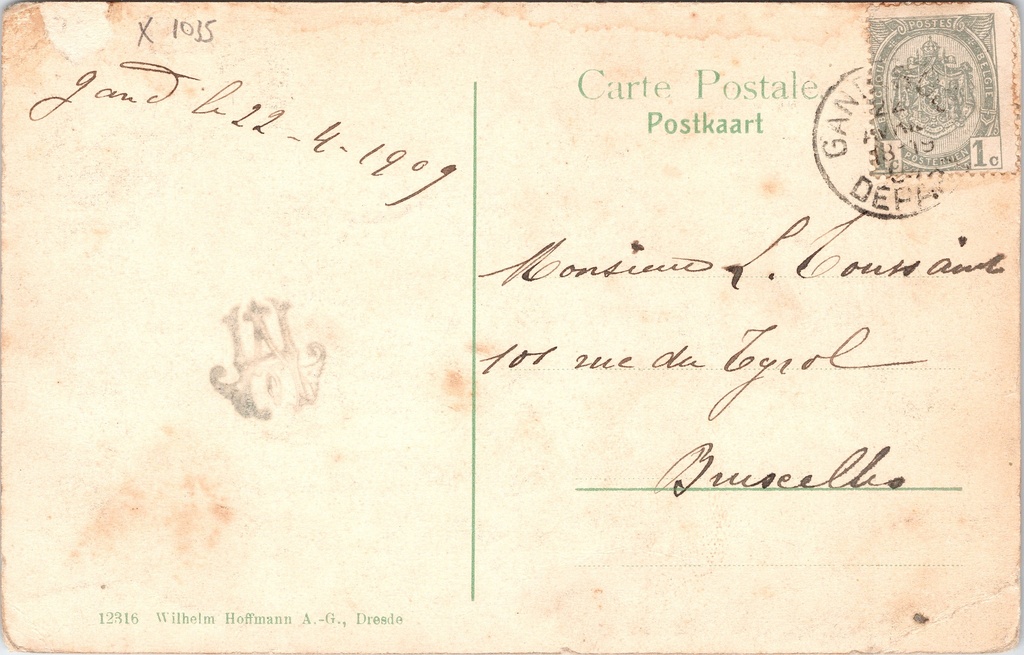 X 1035
Gand le 22-4-1909
Carte Postale
Postkaart
POSTES
BELGIE
POSTERIJEN
1c
GAND
AVRIL
18-19
DEPART
Monsieur L. Toussaint
101 rue du Tyrol
Bruxelles
12316 Wilhelm Hoffmann A.-G., Dresde